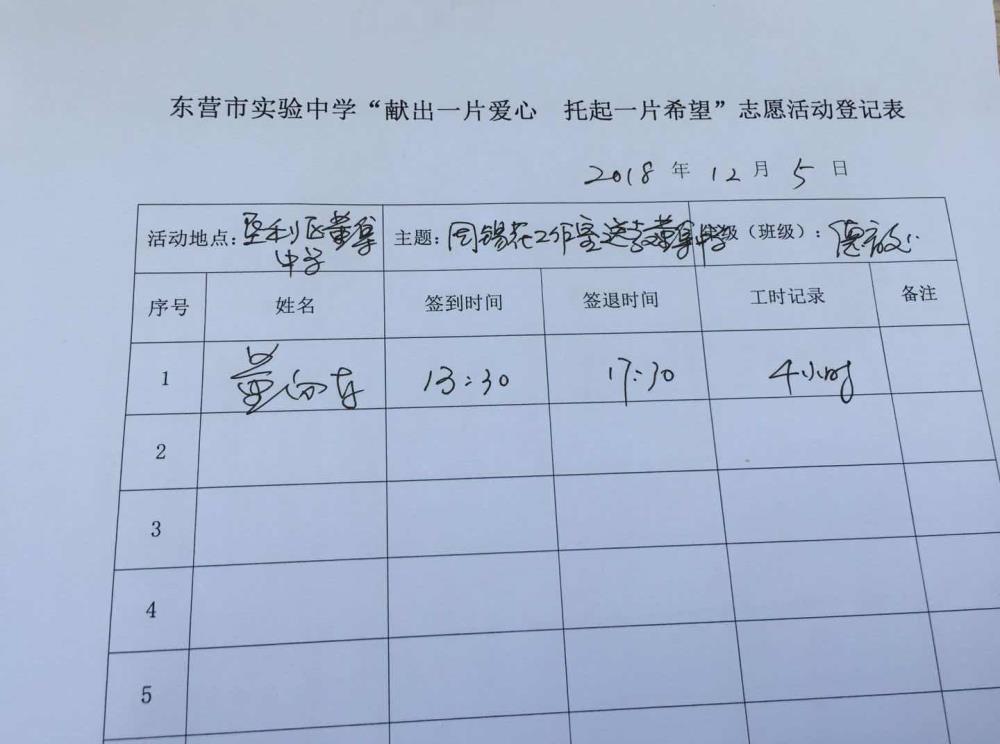 东营市实验中学“献出一片爱心 托起一片希望”志愿活动登记表
2018年12月5日
活动地点:垦利区董集中学 主题:周锡花工作室送教董集中学 级(班级):
序号 姓名 签到时间 签退时间 工时记录 备注
1 13:30 17:30 4小时
2
3
4
5